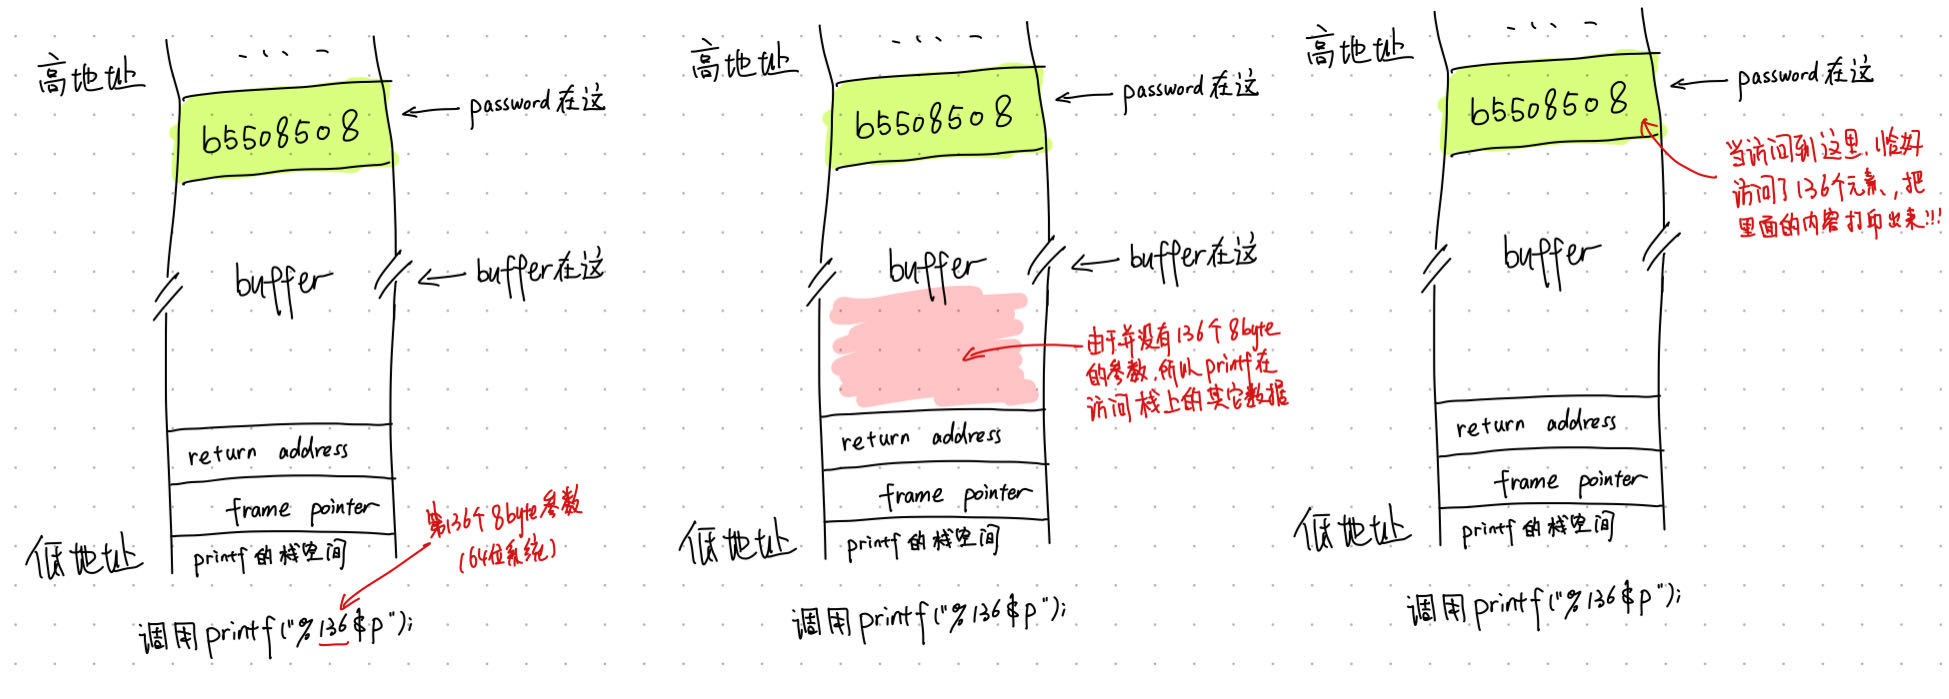 高地址
b5508508
password在这
buffer
buffer在这
return address
frame pointer
低地址
printf的栈空间
第136个8byte参数
(64位系统)
调用printf("%136$p");
高地址
b5508508
password在这
buffer
buffer在这
由于并没有136个8byte
的参数,所以printf在
访问栈上的其它数据
return address
frame pointer
低地址
printf的栈空间
调用printf("%136$p");
高地址
b5508508
password在这
当访问到这里,恰好
访问了136个元素,把
里面的内容打印出来!!!
buffer
return address
frame pointer
低地址
printf的栈空间
调用printf("%136$p");